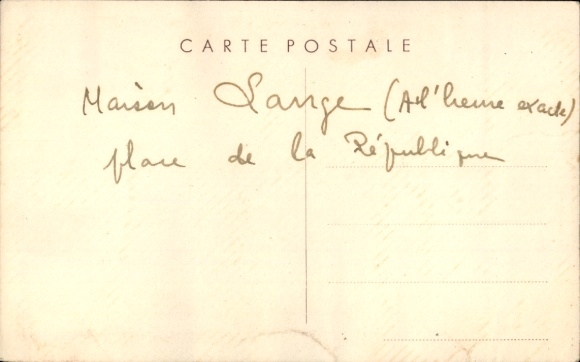 CARTE POSTALE
Maison Lange (A l'heure exacte)
place de la République